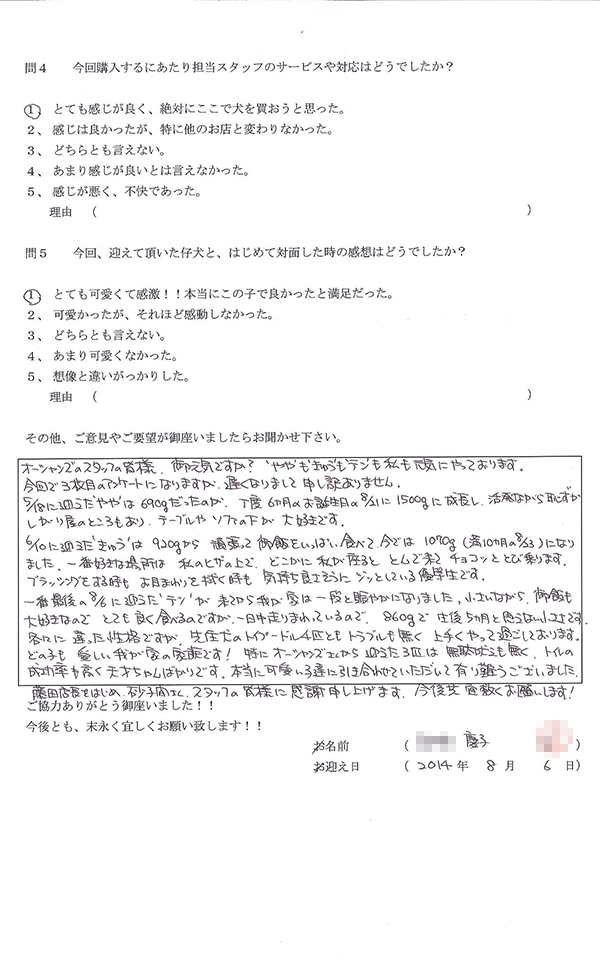 問4 今回購入するにあたり担当スタッフのサービスや対応はどうでしたか？
① とても感じが良く、絶対にここで犬を買おうと思った。
2、感じは良かったが、特に他のお店と変わりなかった。
3、どちらとも言えない。
4、あまり感じが良いとは言えなかった。
5、感じが悪く、不快であった。
理由 ( )
問5 今回、迎えて頂いた仔犬と、はじめて対面した時の感想はどうでしたか？
① とても可愛くて感激！！本当にこの子で良かったと満足だった。
2、可愛かったが、それほど感動しなかった。
3、どちらとも言えない。
4、あまり可愛くなかった。
5、想像と違いがっかりした。
理由 ( )
その他、ご意見やご要望が御座いましたらお聞かせ下さい。
オーシャンズのスタッフの皆様、御元気ですか？"やや"も"きゅう"も"テン"も私も元気にやっております。
今回で3枚目のアンケートになりますが、遅くなりまして申し訳ありません。
5/18に迎えた"やや"は690gだったのが、丁度6ヵ月のお誕生日の8/21に1500gに成長し、活発ながら恥ずかし
がり屋のところもあり、テーブルやソファの下が大好きです。
6/10に迎えた"きゅう"は920gから頑張って御飯をいっぱい食べて、今では1070g(満10ヵ月の8/23)になり
ました。一番好きな場所は私のヒザの上で、どこかに私が座るととんで来てチョコッととび乗ります。
ブラッシングをする時もお目まわりを拭く時も気持ち良さそうにジッとしている優等生です。
一番最後の8/6に迎えた"テン"が来てから我が家は一段と賑やかになりました。小さいながら、御飯も
大好きなのでとても良く食べるのですが、一日中走りまわっているので、860gで生後5ヵ月と思えない小ささです。
各々に違った性格ですが、先住犬のトイプードル4匹ともトラブルも無く上手くやって過ごしております。
どの子も愛しい我が家の家族です！特にオーシャンズさんから迎えた3匹は無駄吠えも無く、トイレの
成功率も高く天才ちゃんばかりです。本当に可愛い3達に引き合わせていただいて有り難うございました。
藤田店長をはじめ、スタッフの皆様に感謝申し上げます。今後共宜敷くお願いします！
ご協力ありがとう御座いました！！
今後とも、末永く宜しくお願い致します！！
お名前 ( 慶子 )
お迎え日 ( 2014年 8月 6日)